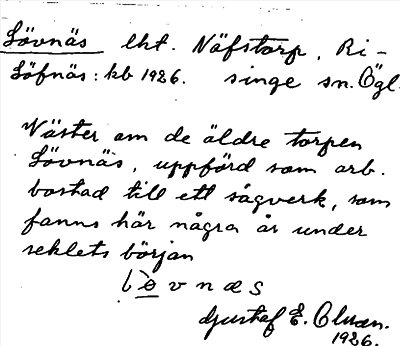 Lövnäs lht. Näfstorp, Ri-
Löfnäs: kb 1926. singe sn. Ögl.
Väster om de äldre torpen
Lövnäs, uppförd som arb.
bostad till ett sågverk, som
fanns här några år under
seklets början
Gustaf E.
1926.